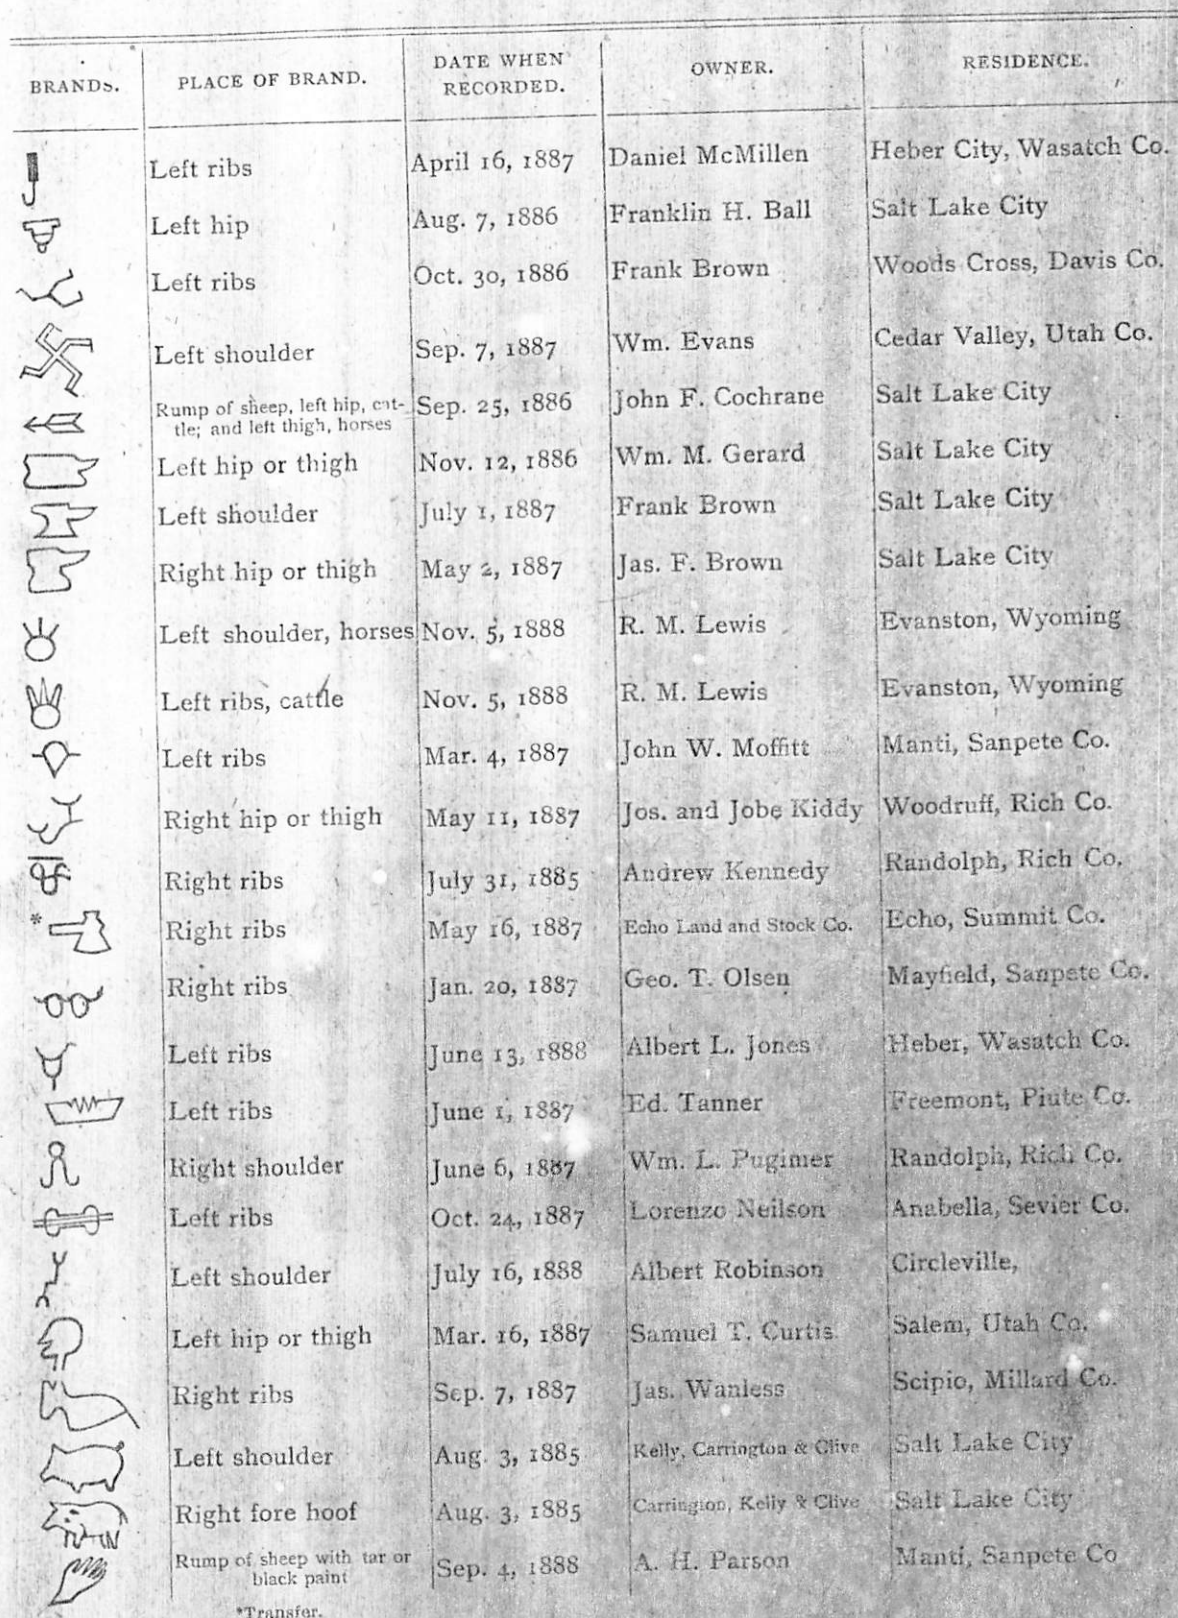 BRANDS. PLACE OF BRAND. DATE WHEN RECORDED. OWNER. RESIDENCE.
Left ribs April 16, 1887 Daniel McMillen Heber City, Wasatch Co.
Left hip Aug. 7, 1886 Franklin H. Ball Salt Lake City
Left ribs Oct. 30, 1886 Frank Brown Woods Cross, Davis Co.
Left shoulder Sep. 7, 1887 Wm. Evans Cedar Valley, Utah Co.
Rump of sheep, left hip, cat-
tle; and left thigh, horses Sep. 25, 1886 John F. Cochrane Salt Lake City
Left hip or thigh Nov. 12, 1886 Wm. M. Gerard Salt Lake City
Left shoulder July 1, 1887 Frank Brown Salt Lake City
Right hip or thigh May 2, 1887 Jas. F. Brown Salt Lake City
Left shoulder, horses Nov. 5, 1888 R. M. Lewis Evanston, Wyoming
Left ribs, cattle Nov. 5, 1888 R. M. Lewis Evanston, Wyoming
Left ribs Mar. 4, 1887 John W. Moffitt Manti, Sanpete Co.
Right hip or thigh May 11, 1887 Jos. and Jobe Kiddy Woodruff, Rich Co.
Right ribs July 31, 1885 Andrew Kennedy Randolph, Rich Co.
* Right ribs May 16, 1887 Echo Land and Stock Co. Echo, Summit Co.
Right ribs Jan. 20, 1887 Geo. T. Olsen Mayfield, Sanpete Co.
Left ribs June 13, 1888 Albert L. Jones Heber, Wasatch Co.
Left ribs June 1, 1887 Ed. Tanner Freemont, Piute Co.
Right shoulder June 6, 1887 Wm. L. Pugimer Randolph, Rich Co.
Left ribs Oct. 24, 1887 Lorenzo Neilson Anabella, Sevier Co.
Left shoulder July 16, 1888 Albert Robinson Circleville,
Left hip or thigh Mar. 16, 1887 Samuel T. Curtis. Salem, Utah Co.
Right ribs Sep. 7, 1887 Jas. Wanless Scipio, Millard Co.
Left shoulder Aug. 3, 1885 Kelly, Carrington & Clive Salt Lake City
Right fore hoof Aug. 3, 1885 Carrington, Kelly & Clive Salt Lake City
Rump of sheep with tar or
black paint Sep. 4, 1888 A. H. Parson Manti, Sanpete Co
*Transfer.